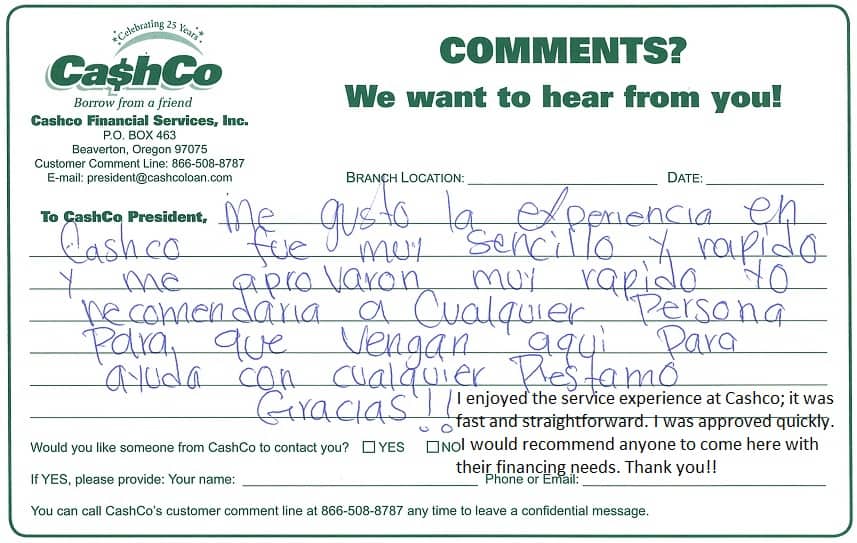 Celebrating 25 Years
Ca$hCo
Borrow from a friend
Cashco Financial Services, Inc.
P.O. BOX 463
Beaverton, Oregon 97075
Customer Comment Line: 866-508-8787
E-mail: president@cashcoloan.com
COMMENTS?
We want to hear from you!
BRANCH LOCATION: DATE:
To CashCo President, Me gusto la experiencia en
Cashco fue muy sencillo y rapido
y me aprovaron muy rapido yo
recomendaria a Cualquier Persona
Para que vengan aqui para
ayuda con cualquier Prestamo
Gracias!!
I enjoyed the service experience at Cashco; it was
fast and straightforward. I was approved quickly.
I would recommend anyone to come here with
their financing needs. Thank you!!
Would you like someone from CashCo to contact you? YES NO
If YES, please provide: Your name: Phone or Email:
You can call CashCo's customer comment line at 866-508-8787 any time to leave a confidential message.